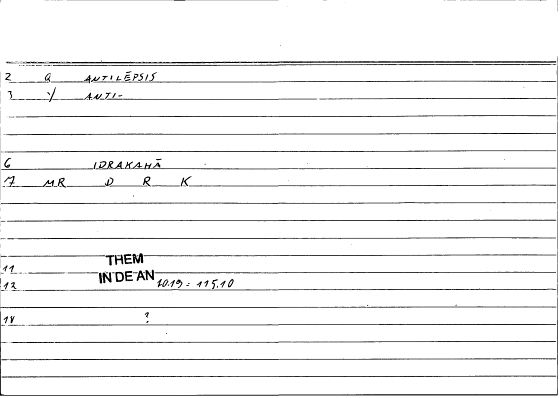 2 G ANTILĒPSIS
3 Y ANTI-
6 IDRAKAHĀ
7 MR D R K
11 THEM
IN DE AN
12 2019 = 115.10
14 ?